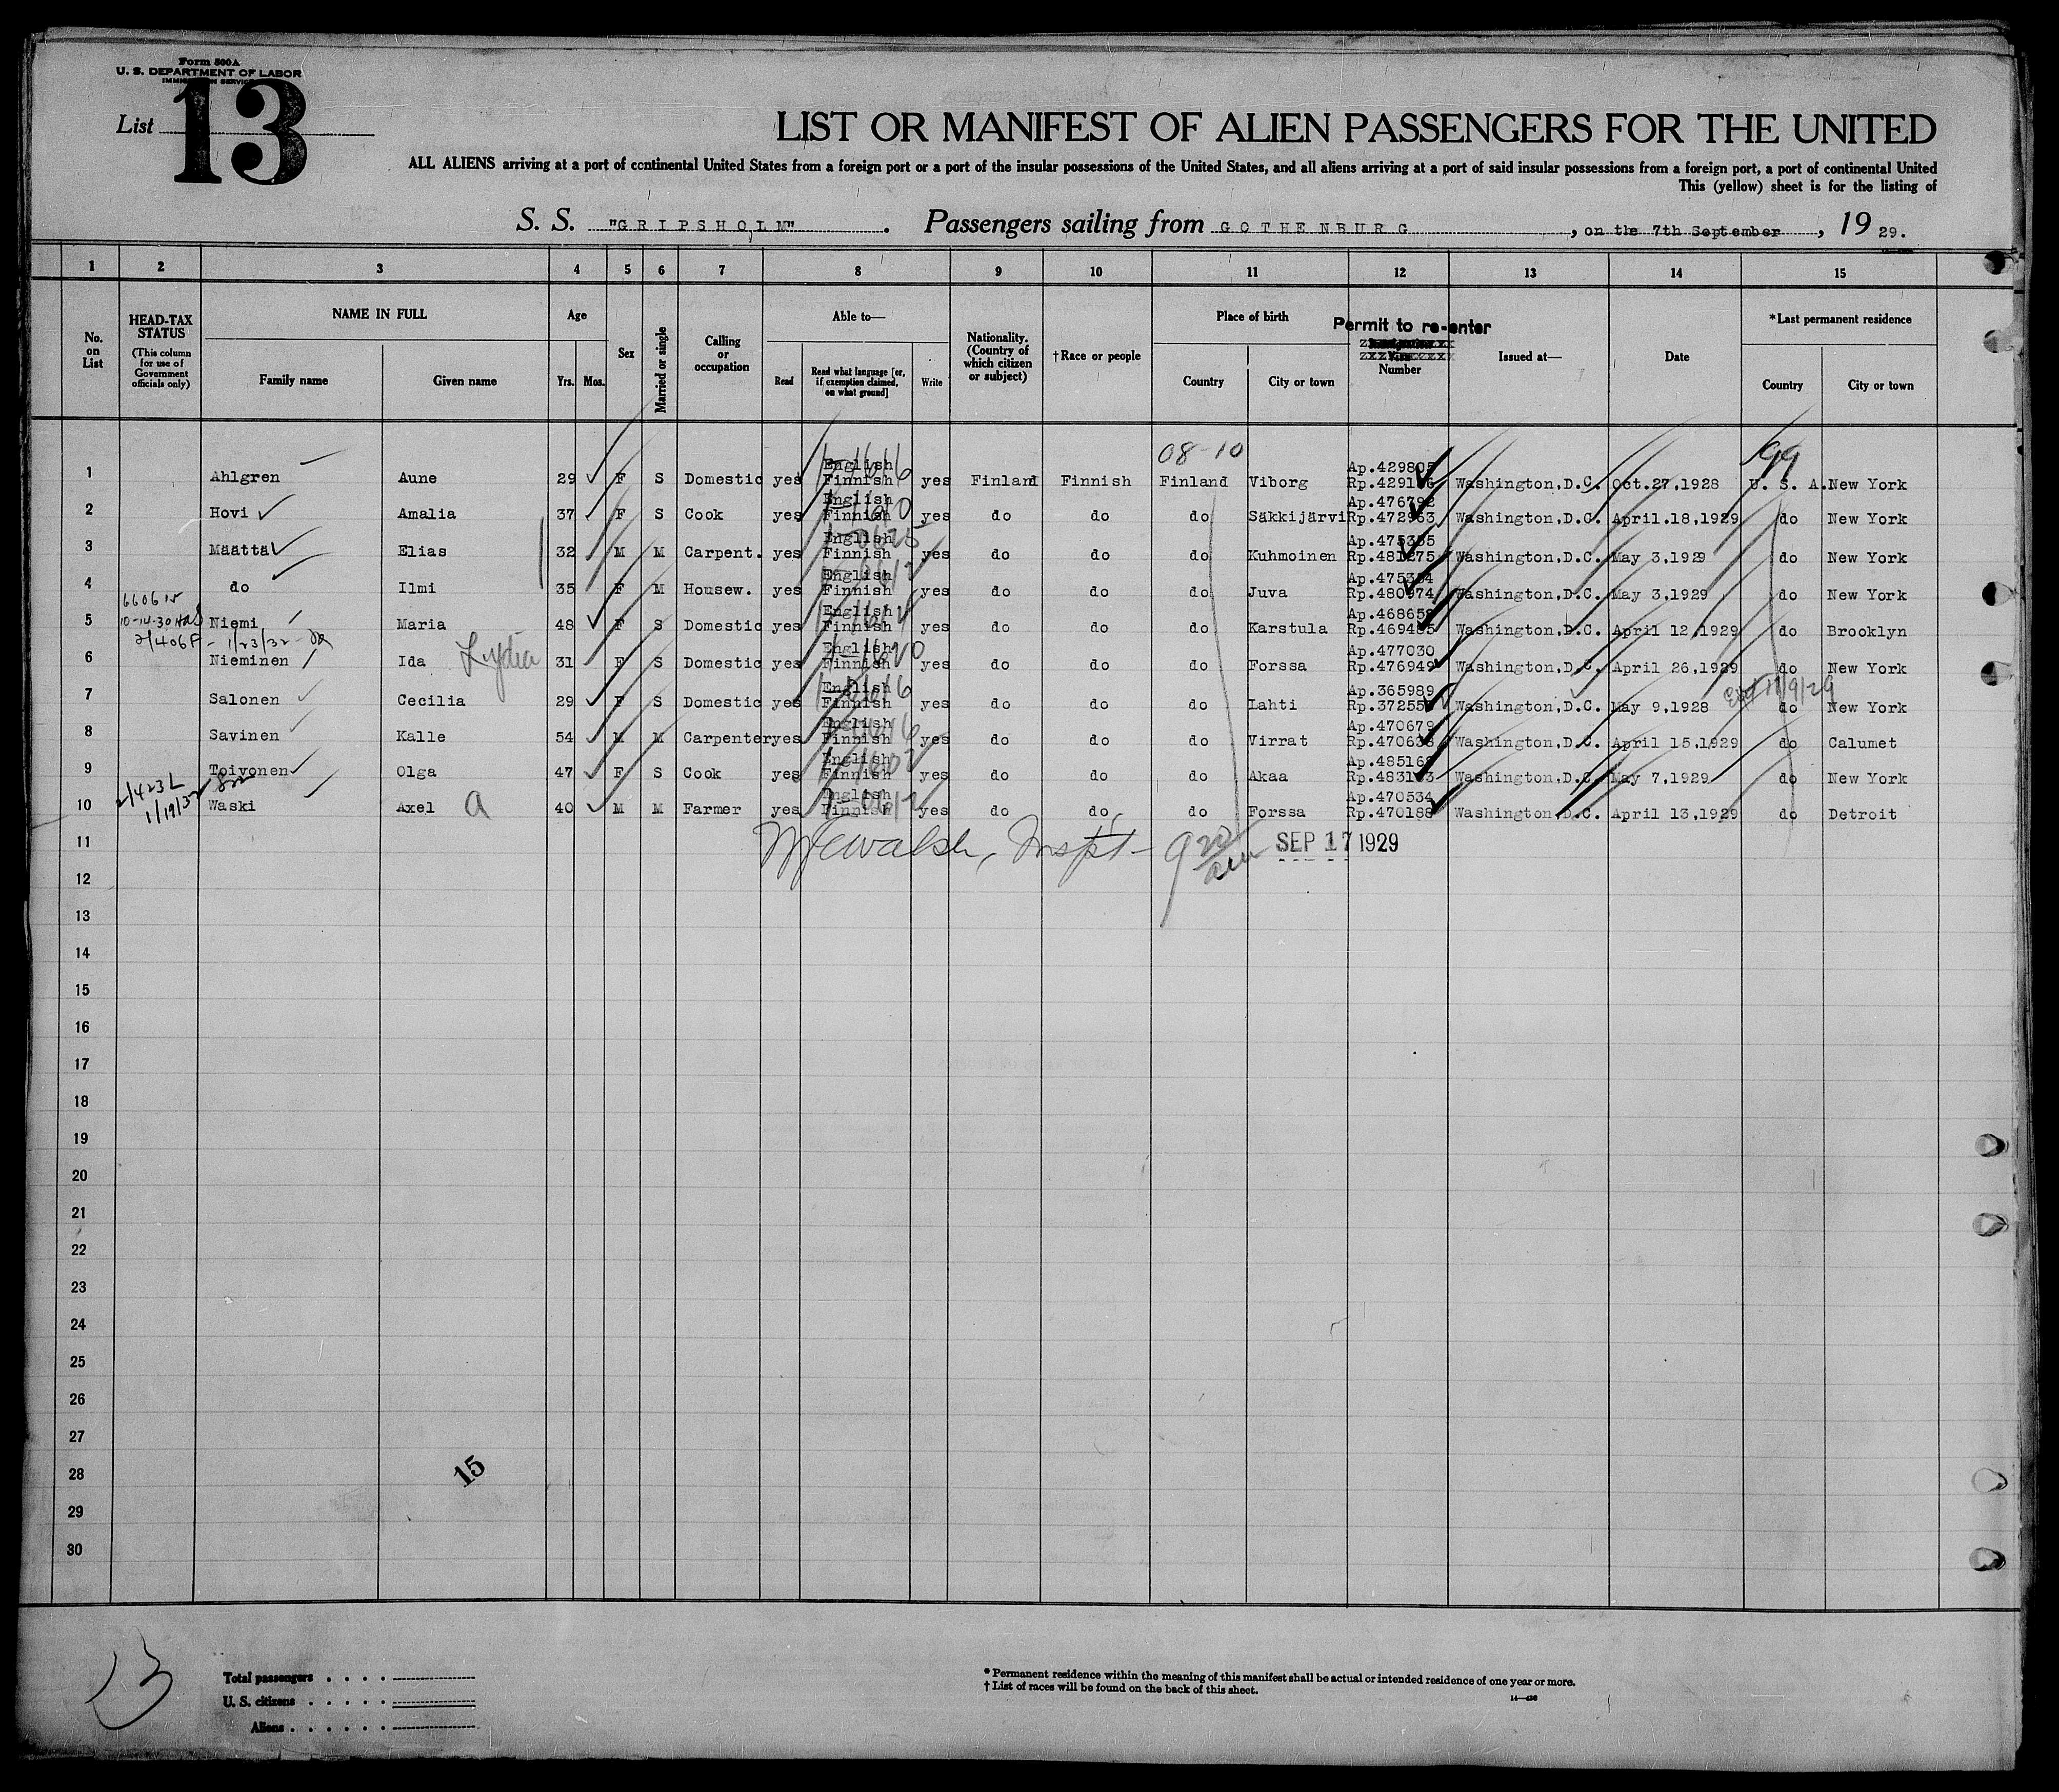 Form 500A
U. S. DEPARTMENT OF LABOR
IMMIGRATION SERVICE
List 13
LIST OR MANIFEST OF ALIEN PASSENGERS FOR THE UNITED
ALL ALIENS arriving at a port of continental United States from a foreign port or a port of the insular possessions of the United States, and all aliens arriving at a port of said insular possessions from a foreign port, a port of continental United
This (yellow) sheet is for the listing of
S. S. "GRIPSHOLM". Passengers sailing from GOTHENBURG, on the 7th September, 19 29.
1 2 3 4 5 6 7 8 9 10 11 12 13 14 15
No. on List
HEAD-TAX STATUS (This column for use of Government officials only)
NAME IN FULL
Family name Given name
Age
Yrs. Mos.
Sex
Married or single
Calling or occupation
Able to—
Read Read what language [or, if exemption claimed, on what ground] Write
Nationality. (Country of which citizen or subject)
†Race or people
Place of birth
Country City or town
Permit to re-enter
Number
Issued at—
Date
*Last permanent residence
Country City or town
08-10 99
1 Ahlgren Aune 29 F S Domestic yes English Finnish yes Finland Finnish Finland Viborg Ap.429805 Rp. Washington,D.C. Oct.27,1928 U. S. A. New York
2 Hovi Amalia 37 F S Cook yes English Finnish yes do do do Säkkijärvi Ap.476792 Rp.472963 Washington,D.C. April.18,1929 do New York
3 Määttä Elias 32 M M Carpent. yes English Finnish yes do do do Kuhmoinen Ap.475355 Rp. Washington,D.C. May 3,1929 do New York
4 do Ilmi 35 F M Housew. yes English Finnish yes do do do Juva Ap.475354 Rp. Washington,D.C. May 3,1929 do New York
660615
10-14-30
5 Niemi Maria 48 F S Domestic yes English Finnish yes do do do Karstula Ap.468658 Rp.469485 Washington,D.C. April 12,1929 do Brooklyn
2/406F - 1/23/32
6 Nieminen Ida Lydia 31 F S Domestic yes English Finnish yes do do do Forssa Ap.477030 Rp.476949 Washington,D.C. April 26,1929 do New York
7 Salonen Cecilia 29 F S Domestic yes English Finnish yes do do do Lahti Ap.365989 Rp. Washington,D.C. May 9,1928 do New York
8 Savinen Kalle 54 M M Carpenter yes English Finnish yes do do do Virrat Ap.470679 Rp.470638 Washington,D.C. April 15,1929 do Calumet
9 Toivonen Olga 47 F S Cook yes English Finnish yes do do do Akaa Ap.485168 Rp. Washington,D.C. May 7,1929 do New York
2/423L 1/19/32
10 Waski Axel A 40 M M Farmer yes English Finnish yes do do do Forssa Ap.470534 Rp.470188 Washington,D.C. April 13,1929 do Detroit
11 Walsh, Inspt- 9 20 am SEP 17 1929
12
13
14
15
16
17
18
19
20
21
22
23
24
25
26
27
28
15
29
30
13
Total passengers
U. S. citizens
Aliens
* Permanent residence within the meaning of this manifest shall be actual or intended residence of one year or more.
† List of races will be found on the back of this sheet.